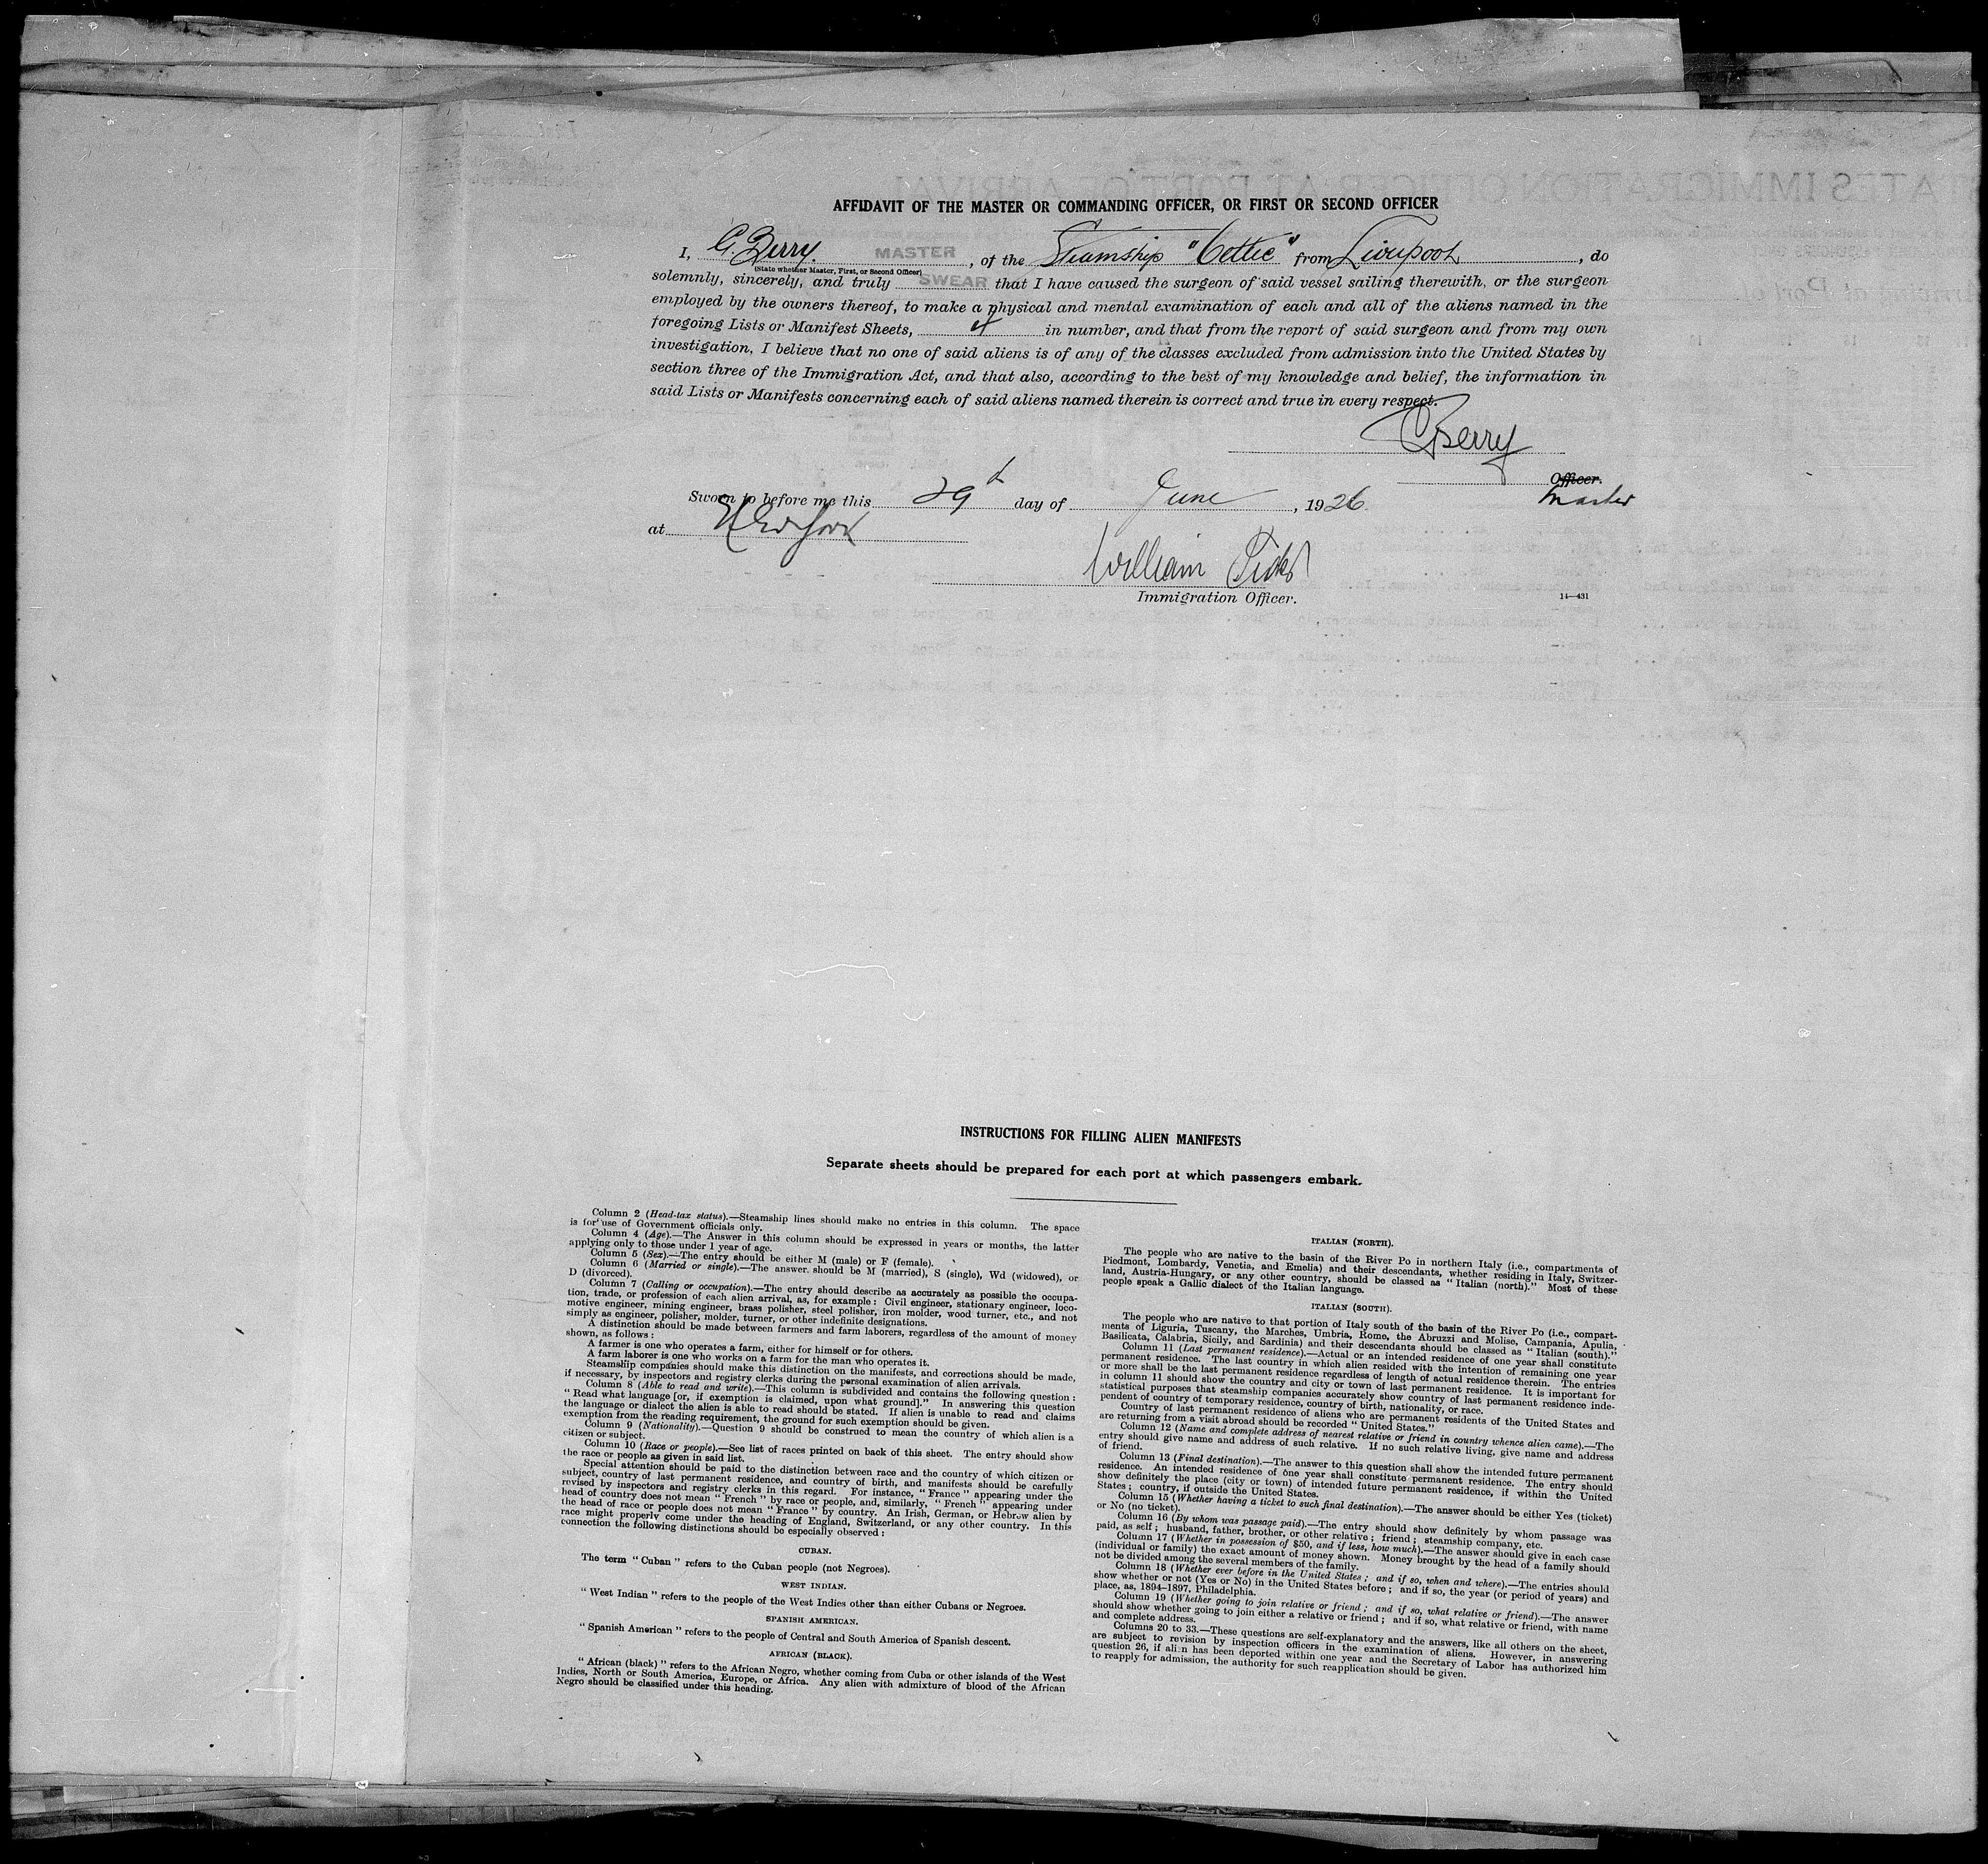 AFFIDAVIT OF THE MASTER OR COMMANDING OFFICER, OR FIRST OR SECOND OFFICER
I, G. Berry. MASTER, of the Steamship "Celtic" from Liverpool, do
(State whether Master, First, or Second Officer)
solemnly, sincerely, and truly SWEAR that I have caused the surgeon of said vessel sailing therewith, or the surgeon
employed by the owners thereof, to make a physical and mental examination of each and all of the aliens named in the
foregoing Lists or Manifest Sheets, in number, and that from the report of said surgeon and from my own
investigation, I believe that no one of said aliens is of any of the classes excluded from admission into the United States by
section three of the Immigration Act, and that also, according to the best of my knowledge and belief, the information in
said Lists or Manifests concerning each of said aliens named therein is correct and true in every respect.
GBerry
Officer.
Master
Sworn to before me this 29th day of June, 1926
at New York
William
Immigration Officer.
14—431
INSTRUCTIONS FOR FILLING ALIEN MANIFESTS
Separate sheets should be prepared for each port at which passengers embark.
Column 2 (Head-tax status).—Steamship lines should make no entries in this column. The space
is for use of Government officials only.
Column 4 (Age).—The Answer in this column should be expressed in years or months, the latter
applying only to those under 1 year of age.
Column 5 (Sex).—The entry should be either M (male) or F (female).
Column 6 (Married or single).—The answer should be M (married), S (single), Wd (widowed), or
D (divorced).
Column 7 (Calling or occupation).—The entry should describe as accurately as possible the occupa-
tion, trade, or profession of each alien arrival, as, for example: Civil engineer, stationary engineer, loco-
motive engineer, mining engineer, brass polisher, steel polisher, iron molder, wood turner, etc., and not
simply as engineer, polisher, molder, turner, or other indefinite designations.
A distinction should be made between farmers and farm laborers, regardless of the amount of money
shown, as follows:
A farmer is one who operates a farm, either for himself or for others.
A farm laborer is one who works on a farm for the man who operates it.
Steamship companies should make this distinction on the manifests, and corrections should be made,
if necessary, by inspectors and registry clerks during the personal examination of alien arrivals.
Column 8 (Able to read and write).—This column is subdivided and contains the following question:
"Read what language [or, if exemption is claimed, upon what ground]." In answering this question
the language or dialect the alien is able to read should be stated. If alien is unable to read and claims
exemption from the reading requirement, the ground for such exemption should be given.
Column 9 (Nationality).—Question 9 should be construed to mean the country of which alien is a
citizen or subject.
Column 10 (Race or people).—See list of races printed on back of this sheet. The entry should show
the race or people as given in said list.
Special attention should be paid to the distinction between race and the country of which citizen or
subject, country of last permanent residence, and country of birth, and manifests should be carefully
revised by inspectors and registry clerks in this regard. For instance, "France" appearing under the
head of country does not mean "French" by race or people, and, similarly, "French" appearing under
the head of race or people does not mean "France" by country. An Irish, German, or Hebrew alien by
race might properly come under the heading of England, Switzerland, or any other country. In this
connection the following distinctions should be especially observed:
CUBAN.
The term "Cuban" refers to the Cuban people (not Negroes).
WEST INDIAN.
"West Indian" refers to the people of the West Indies other than either Cubans or Negroes.
SPANISH AMERICAN.
"Spanish American" refers to the people of Central and South America of Spanish descent.
AFRICAN (BLACK).
"African (black)" refers to the African Negro, whether coming from Cuba or other islands of the West
Indies, North or South America, Europe, or Africa. Any alien with admixture of blood of the African
Negro should be classified under this heading.
ITALIAN (NORTH).
The people who are native to the basin of the River Po in northern Italy (i.e., compartments of
Piedmont, Lombardy, Venetia, and Emelia) and their descendants, whether residing in Italy, Switzer-
land, Austria-Hungary, or any other country, should be classed as "Italian (north)." Most of these
people speak a Gallic dialect of the Italian language.
ITALIAN (SOUTH).
The people who are native to that portion of Italy south of the basin of the River Po (i.e., compart-
ments of Liguria, Tuscany, the Marches, Umbria, Rome, the Abruzzi and Molise, Campania, Apulia,
Basilicata, Calabria, Sicily, and Sardinia) and their descendants should be classed as "Italian (south)."
Column 11 (Last permanent residence).—Actual or an intended residence of one year shall constitute
permanent residence. The last country in which alien resided with the intention of remaining one year
or more shall be the last permanent residence regardless of length of actual residence therein. The entries
in column 11 should show the country and city or town of last permanent residence. It is important for
statistical purposes that steamship companies accurately show country of last permanent residence inde-
pendent of country of temporary residence, country of birth, nationality, or race.
Country of last permanent residence of aliens who are permanent residents of the United States and
are returning from a visit abroad should be recorded "United States."
Column 12 (Name and complete address of nearest relative or friend in country whence alien came).—The
entry should give name and address of such relative. If no such relative living, give name and address
of friend.
Column 13 (Final destination).—The answer to this question shall show the intended future permanent
residence. An intended residence of one year shall constitute permanent residence. The entry should
show definitely the place (city or town) of intended future permanent residence, if within the United
States; country, if outside the United States.
Column 15 (Whether having a ticket to such final destination).—The answer should be either Yes (ticket)
or No (no ticket).
Column 16 (By whom was passage paid).—The entry should show definitely by whom passage was
paid, as self; husband, father, brother, or other relative; friend; steamship company, etc.
Column 17 (Whether in possession of $50, and if less, how much).—The answer should give in each case
(individual or family) the exact amount of money shown. Money brought by the head of a family should
not be divided among the several members of the family.
Column 18 (Whether ever before in the United States; and if so, when and where).—The entries should
show whether or not (Yes or No) in the United States before; and if so, the year (or period of years) and
place, as, 1894–1897, Philadelphia.
Column 19 (Whether going to join relative or friend; and if so, what relative or friend).—The answer
should show whether going to join either a relative or friend; and if so, what relative or friend, with name
and complete address.
Columns 20 to 33.—These questions are self-explanatory and the answers, like all others on the sheet,
are subject to revision by inspection officers in the examination of aliens. However, in answering
question 26, if alien has been deported within one year and the Secretary of Labor has authorized him
to reapply for admission, the authority for such reapplication should be given.